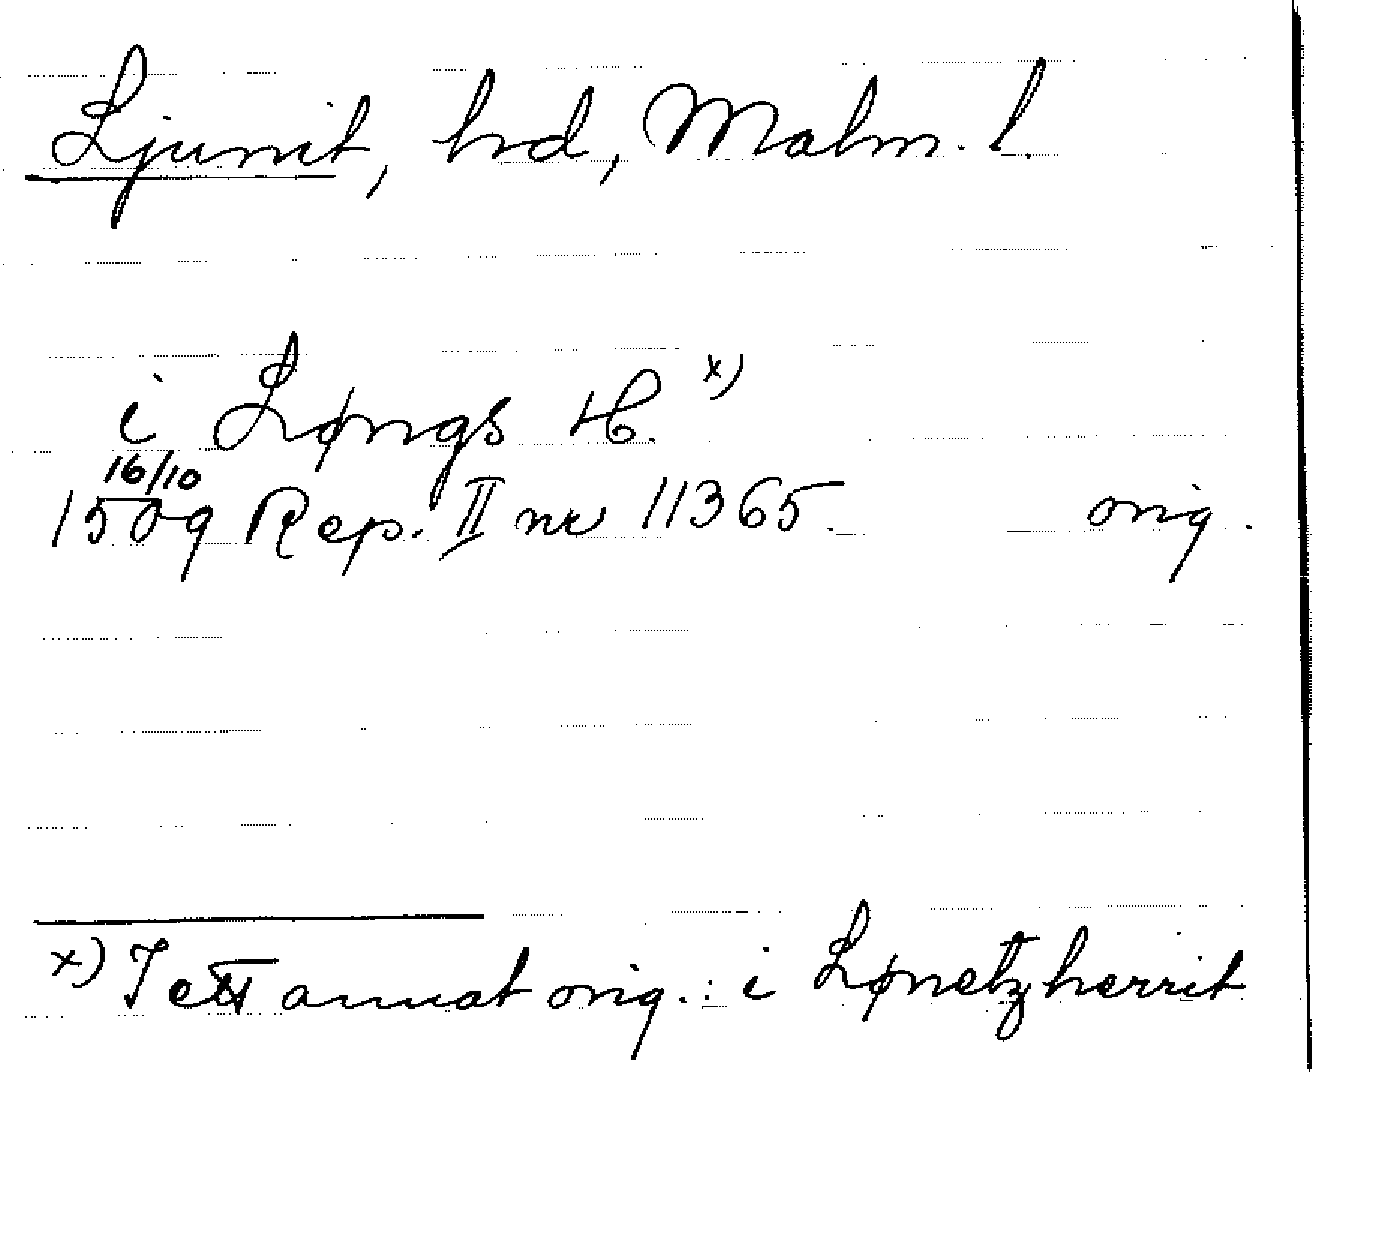 Ljunit, hd, Malm. l.
i Løngs H. x)
16/10
1509 Rep. II nr 11365. orig.
x) I ett annat orig.: i Lønetzherrit